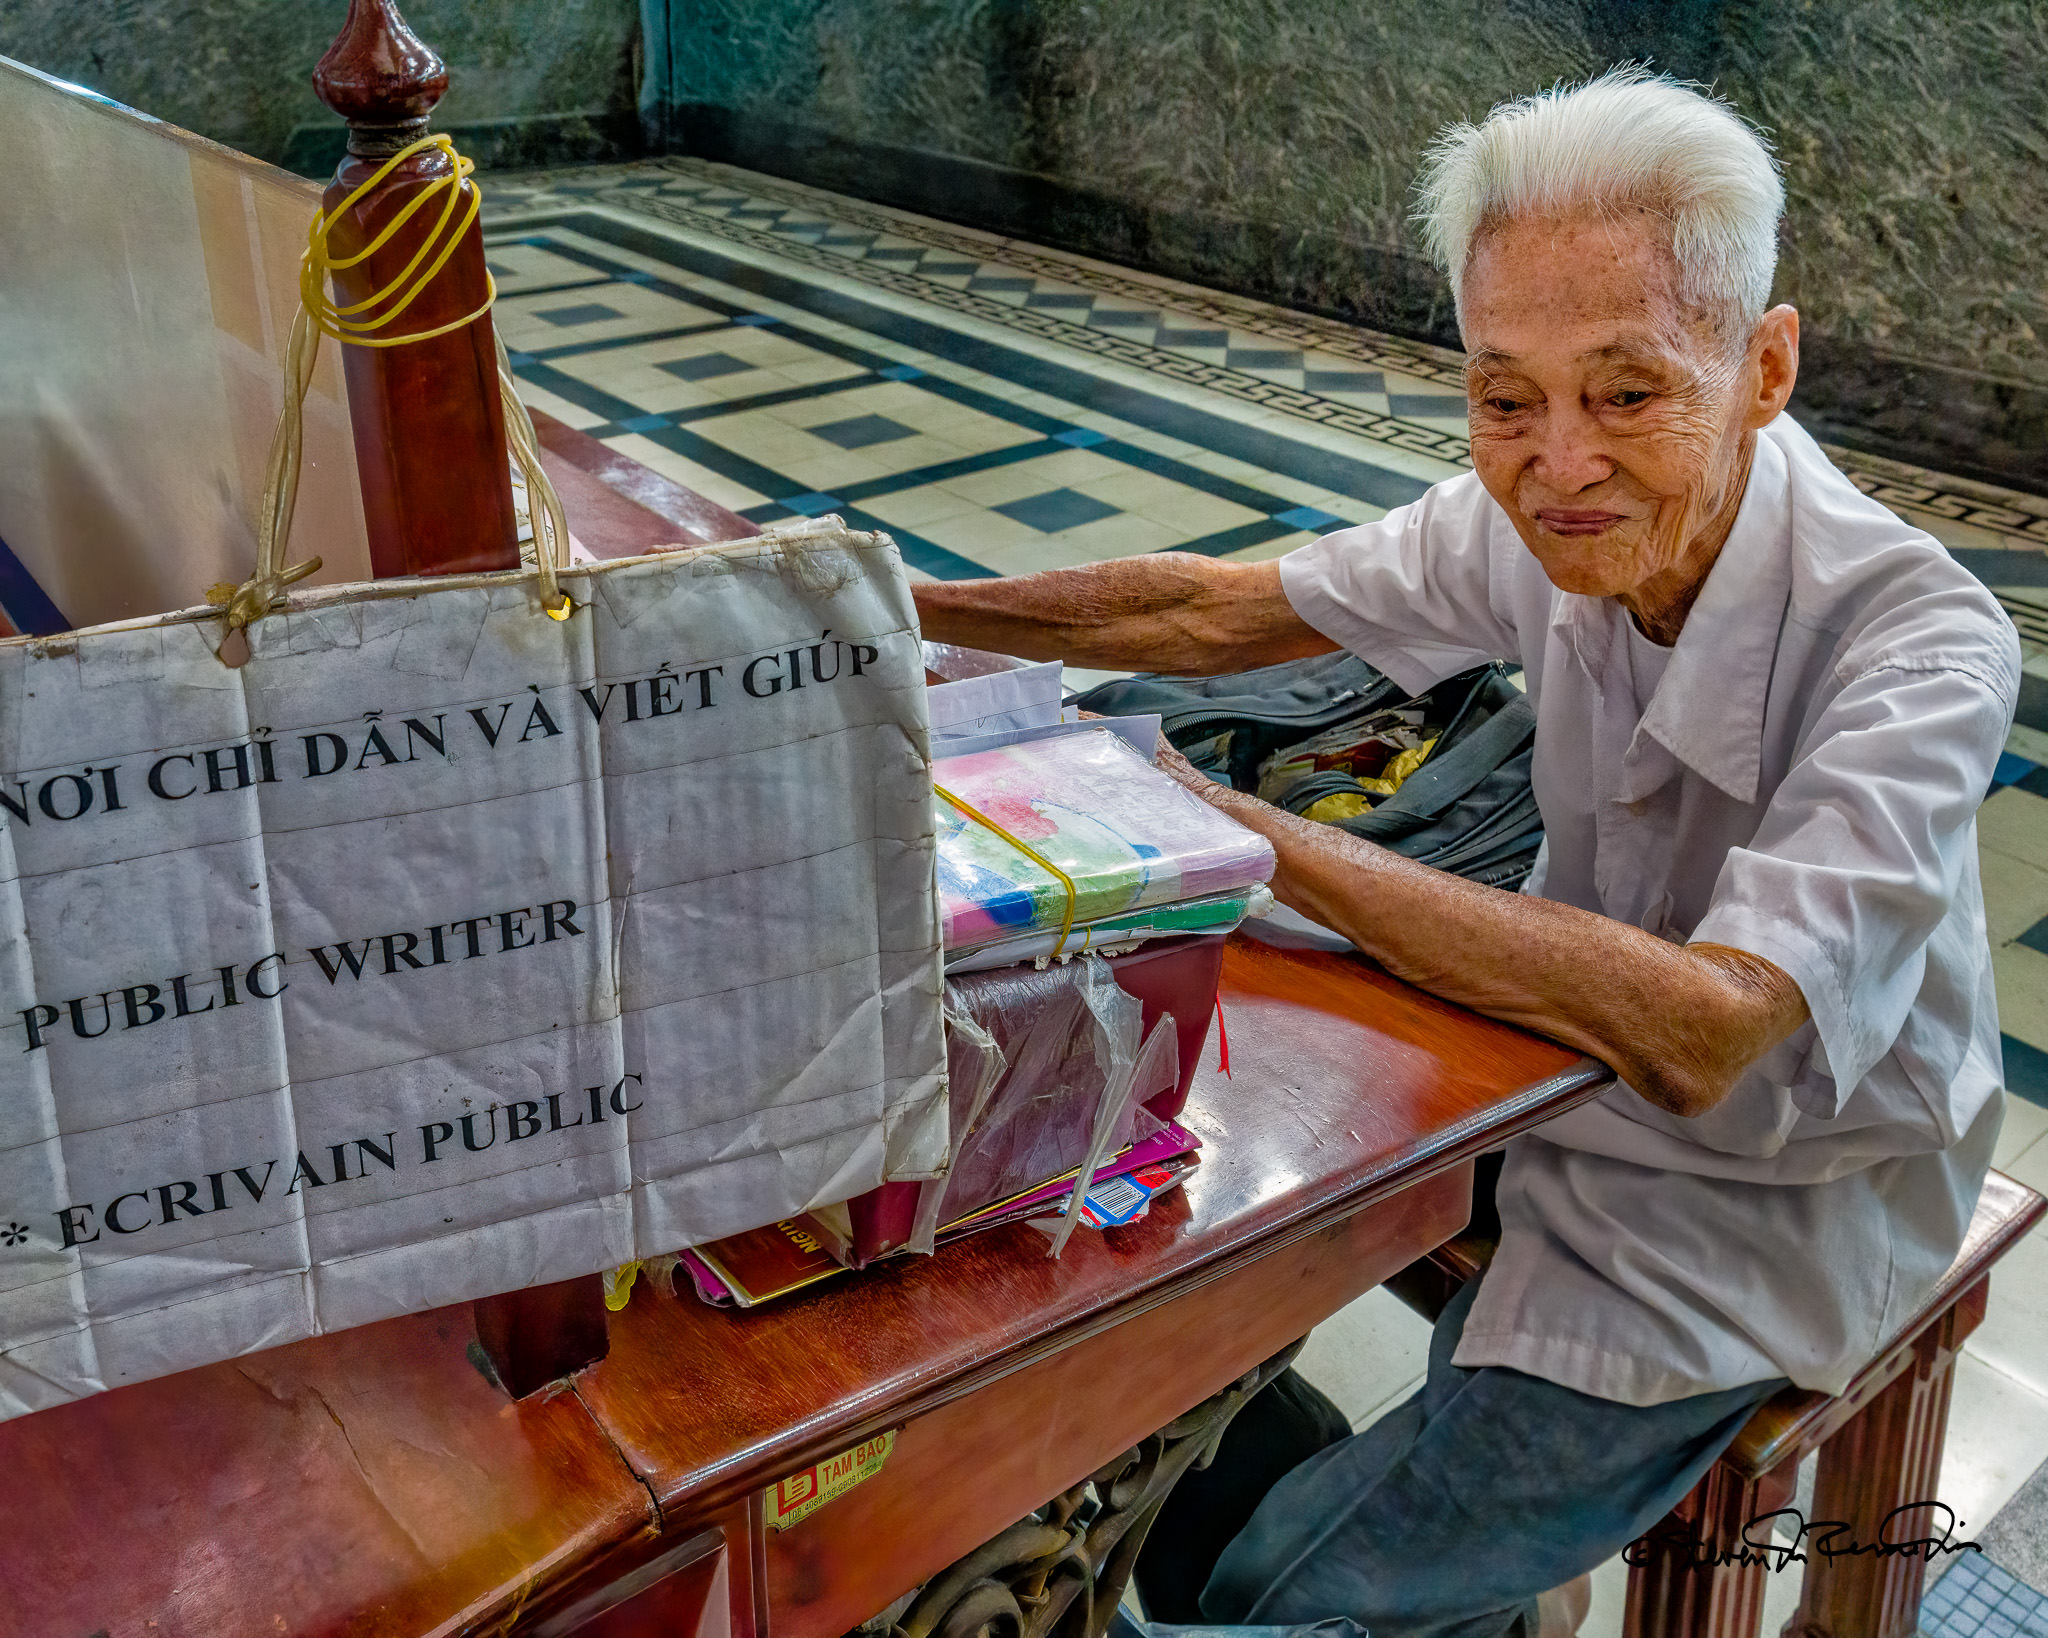 NƠI CHỈ DẪN VÀ VIẾT GIÚP
PUBLIC WRITER
* ECRIVAIN PUBLIC
TAM BAO